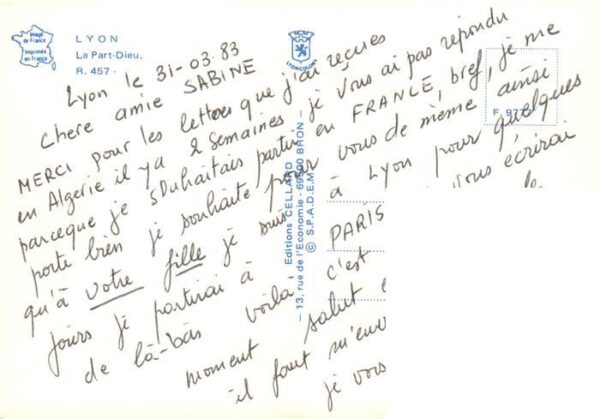 Image de France
Imprimée en France
LYON
La Part-Dieu.
R. 457 -
LYONCOLOR
F 977
Lyon le 31-03.83
Chere amie SABINE
MERCI pour les lettres que j'ai recues
en Algerie il ya 2 semaines je vous ai pas repondu
parceque je souhaitais partir en FRANCE, bref, je me
porte bien je souhaite pour vous de même ainsi
qu'à votre fille je suis à Lyon pour quelques
jours je partirai à PARIS vous écrirai
de là-bas voilà c'est le
moment salut
il faut m'env
je vous
Editions CELLARD
— 13, rue de l'Economie - 69500 BRON —
© S.P.A.D.E.M.